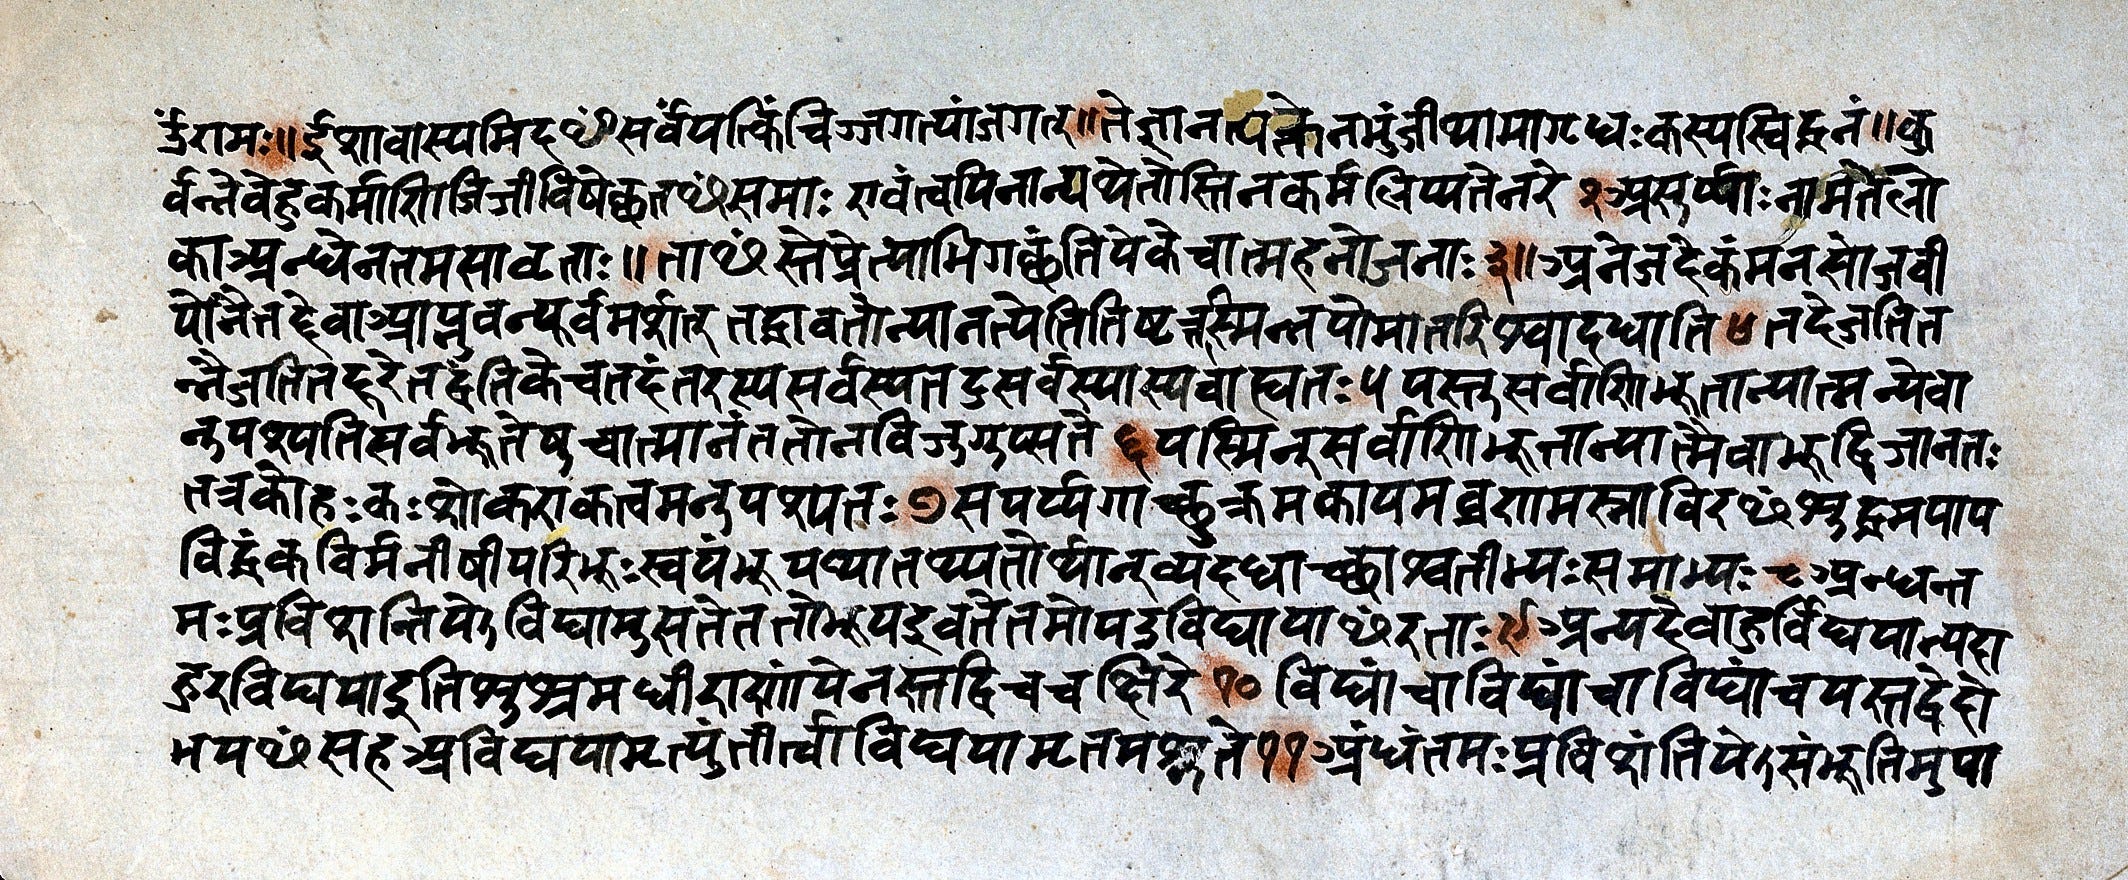 ॐरामः॥ईशावास्यमिदꣳसर्वंयत्किंचिज्जगत्यांजगत्॥तेनत्यक्तेनभुंजीथामागृधःकस्यस्विद्धनं॥कु
र्वन्नेवेहकर्माणिजिजीविषेच्छतꣳसमाः एवंत्वयिनान्यथेतोस्तिनकर्मलिप्यतेनरे २असुर्य्याःनामतेलो
काअन्धेनतमसावृताः॥ताꣳस्तेप्रेत्याभिगच्छंतियेकेचात्महनोजनाः३॥अनेजदेकंमनसोजवी
योनैतद्देवाआप्नुवन्पूर्वमर्शत् तद्धावतोन्यानत्येतितिष्टत्तस्मिन्नपोमातरिश्वादधाति४तदेजतित
न्नैजतितद्दूरेतद्वंतिकेचतदंतरस्यसर्वस्यतदुसर्वस्यास्यवाह्यतः५यस्तुसर्वाणिभूतान्यात्मन्येवा
नुपश्यतिसर्वभूतेषुचात्मानंततोनविजुगुप्सते६यस्मिन्सर्वाणिभूतान्यात्मैवाभूद्विजानतः
तत्रकोहःकःशोकएकत्वमनुपश्यतः७सपर्य्यगाच्छुक्रमकायमव्रणमस्नाविरꣳशुद्धमपाप
विद्धंकविर्मनीषीपरिभूःस्वयंभूयथातथ्यतोर्थान्व्यदधाच्छाश्वतीभ्यःसमाभ्यः८अन्धन्त
मःप्रविशन्तियेऽविद्यामुसतेततोभूयइवतेतमोयउविद्यायाꣳरताः९अन्यदेवाहुर्विद्ययान्यदा
हुरविद्ययाइतिशुश्रमधीराणांयेनस्तद्विचचक्षिरे१०विद्यांचाविद्यांचाविद्यांचयस्तद्वेदो
भयꣳसहअविद्ययामृत्युंतीर्त्वाविद्ययामृतमश्नुते११अंधंतमःप्रविशंतियेऽसंभूतिमुपा